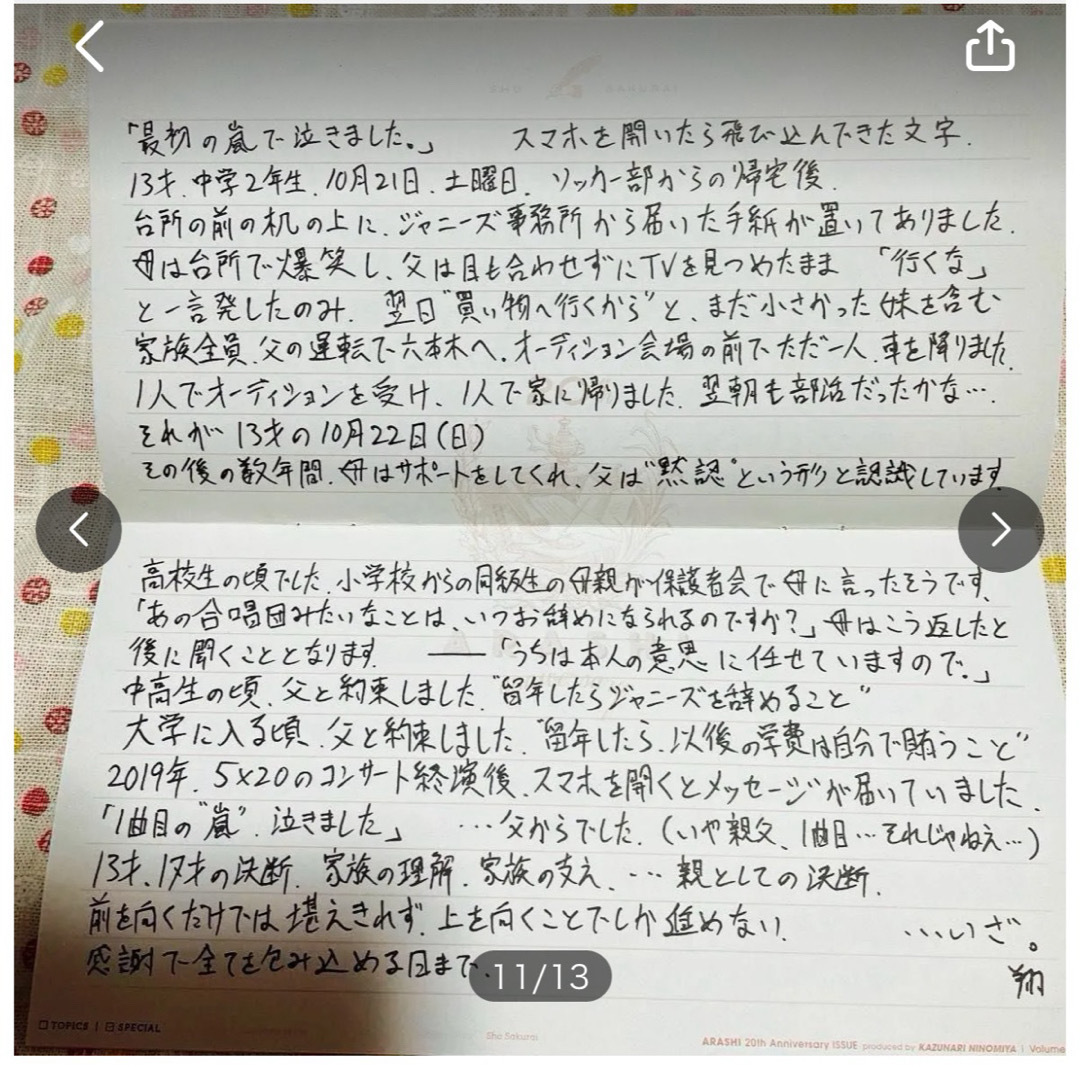 「最初の嵐で泣きました。」　スマホを開いたら飛び込んできた文字.
13才.中学2年生.10月21日.土曜日.ソッカー部からの帰宅後.
台所の前の机の上に.ジャニーズ事務所から届いた手紙が置いてありました.
母は台所で爆笑し、父は目も合わせずにTVを見つめたまま　「行くな」
と一言発したのみ.　翌日"買い物へ行くから"と、まだ小さかった妹を含む
家族全員.父の運転で六本木へ.オーディション会場の前でただ一人.車を降りました.
1人でオーディションを受け、1人で家に帰りました.翌朝も部活だったかな….
それが13才の10月22日(日)
その後の数年間.母はサポートをしてくれ、父は"黙認"という形と認識しています.
高校生の頃でした.小学校からの同級生の母親が保護者会で母に言ったそうです.
「あの合唱団みたいなことは、いつお辞めになられるのですか?」母はこう返したと
後に聞くこととなります　――「うちは本人の意思に任せていますので。」
中高生の頃、父と約束しました."留年したらジャニーズを辞めること"
大学に入る頃.父と約束しました."留年したら、以後の学費は自分で賄うこと"
2019年.5×20のコンサート終演後.スマホを開くとメッセージが届いていました.
「1曲目の"嵐".泣きました」　…父からでした.(いや親父、1曲目…それじゃねえ…)
13才、17才の決断.家族の理解.家族の支え、…親としての決断.
前を向くだけでは堪えきれず.上を向くことでしか進めない.　…いざ。
感謝で全てを包み込める日まで.
翔
11/13
TOPICS | SPECIAL
Sho Sakurai
ARASHI 20th Anniversary ISSUE produced by KAZUNARI NINOMIYA | Volume